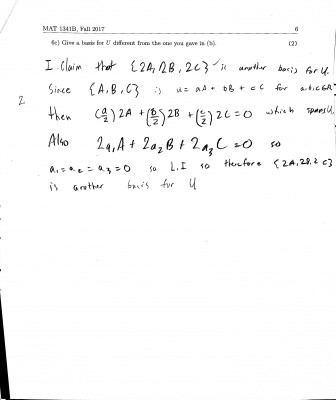 MAT 1341B, Fall 2017 6
6c) Give a basis for U different from the one you gave in (b). (2)
I Claim that {2A, 2B, 2C} is another basis for U.
Since {A, B, C} is u = aA + bB + cC for a,b,c∈R
2
then (a/2) 2A + (b/2) 2B + (c/2) 2C = 0 which spans U
Also 2a₁A + 2a₂B + 2a₃C = 0 so
a₁ = a₂ = a₃ = 0 so L.I so therefore {2A, 2B, 2C}
is another basis for U